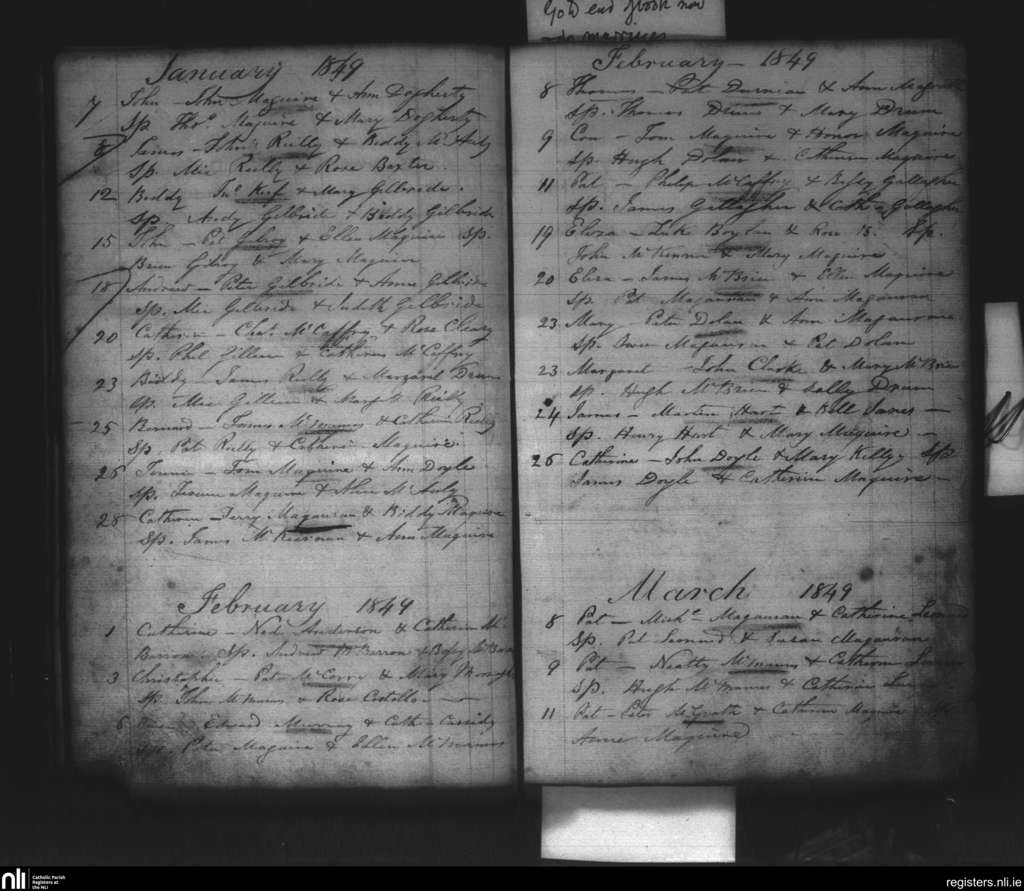 God end of book now
do marriages
January 1849
7 John - John Maguire & Ann Dogherty
Sp Thos. Maguire & Mary Dogherty
8 James - Reilly & Biddy McAuly
Sp. Mic Reilly & Rose Baxter.
12 Biddy Keef & Mary Gilbride.
Sp. Andy Gilbride & Biddy Gilbride
15 John - Pat Gilroy & Ellen Maguire Sp.
Brien Gilroy & Mary Maguire
18 Andrew - Peter Gilbride & Anne Gilbride
Sp. Mic Gilbride & Judith Gilbride
20 Catherine - Chas. McCaffry & Rose Cleary
Sp. Phil Gilleen & Catherine McCaffry
23 Biddy - James Reilly & Margaret Drum
Sp. Mic Gilleen & Margt. Reilly
25 Bernard - James McManus & Catherine Reilly
Sp Pat Reilly & Catherine Maguire.
26 - Tom Maguire & Ann Doyle
Sp. Maguire & McAuly
28 Catherine - Terry Magauran & Biddy Maguire
Sp. James McKiernan & Ann Maguire
February 1849
1 Catherine - Ned Anderson & Catherine Mc
Barron - Sp. Andrew McBarron &
3 Christopher - Pat McCorry & Mary
Sp. John McManus & Rose Costolloe
6 Edward Murray & Cath - Cassidy
Peter Maguire & Ellen McManus
February - 1849
8 Thomas - Pat & Ann
Sp. Thomas Drum & Mary Drum
9 Con - Tom Maguire & Honor Maguire
Sp. Hugh Dolan & Catherine Maguire
11 Pat - Philip McCaffry & Betsy Gallagher
Sp. James Gallagher & Cath - Gallagher
19 Eliza - Luke Boylan & Rose B. Sp.
John McKenna & Mary Maguire
20 Eliza - James McBrien & Ellen Maguire
Sp. Pat Magauran & Ann Magauran
23 Mary - Peter Dolan & Ann Magauran
Sp. Owen Magauran & Pat Dolan
23 Margaret - John Clarke & Mary McBrien
Sp. Hugh McBrien & Sally Drum
24 James - Martin Hart & Bell Janes -
Sp. Henry Hart & Mary Maguire -
26 Catherine - John Doyle & Mary Kelly - Sp
James Doyle & Catherine Maguire -
March 1849
8 Pat - Michl. Magauran & Catherine Leonard
Sp. Pat Leonard & Susan Magauran
9 Pat - Neatty McManus & Catherine
Sp. Hugh McManus & Catherine
11 Pat - Peter McGrath & Catherine Maguire
Anne Maguire
nli
Catholic Parish
Registers at
the NLI
registers.nli.ie